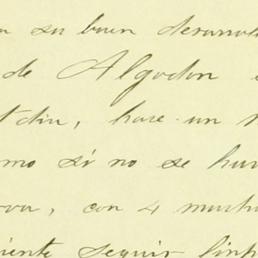 su buen desarrol
de Algodon
dia, hace un
mo si no se hu
va, con 4 much
iente seguir limp